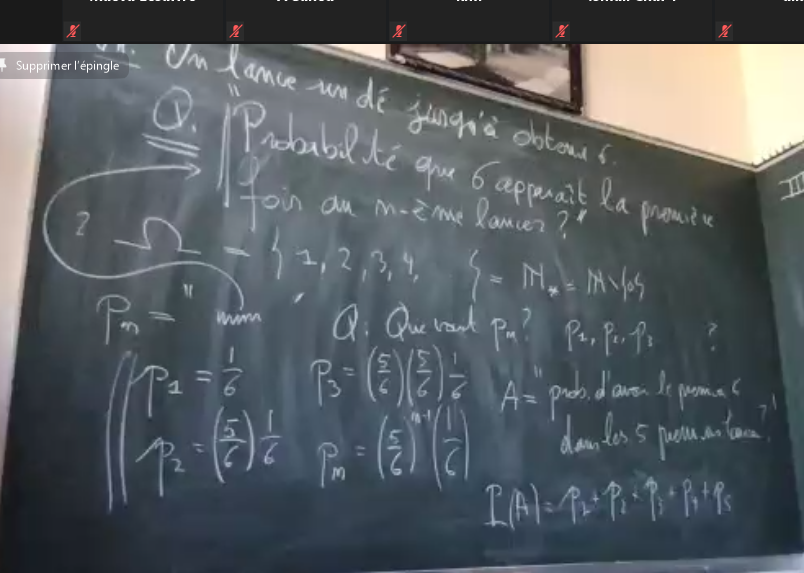 Supprimer l'épingle
On lance un dé jusqu'à obtenir 6.
Q. "Probabilité que 6 apparaît la première
fois au n-ème lancer ?"
? Ω = { 1, 2, 3, 4, } = N* = N\{0}
Pn = " "
Q. Que vaut pn ? P1, P2, P3 ?
p1 = 1/6
P3 = (5/6)(5/6) 1/6
A = " prob. d'avoir le premier 6
p2 = (5/6) 1/6
Pn = (5/6)^(n-1) (1/6)
dans les 5 premiers lancers ?"
P(A) = P1 + P2 + P3 + P4 + P5